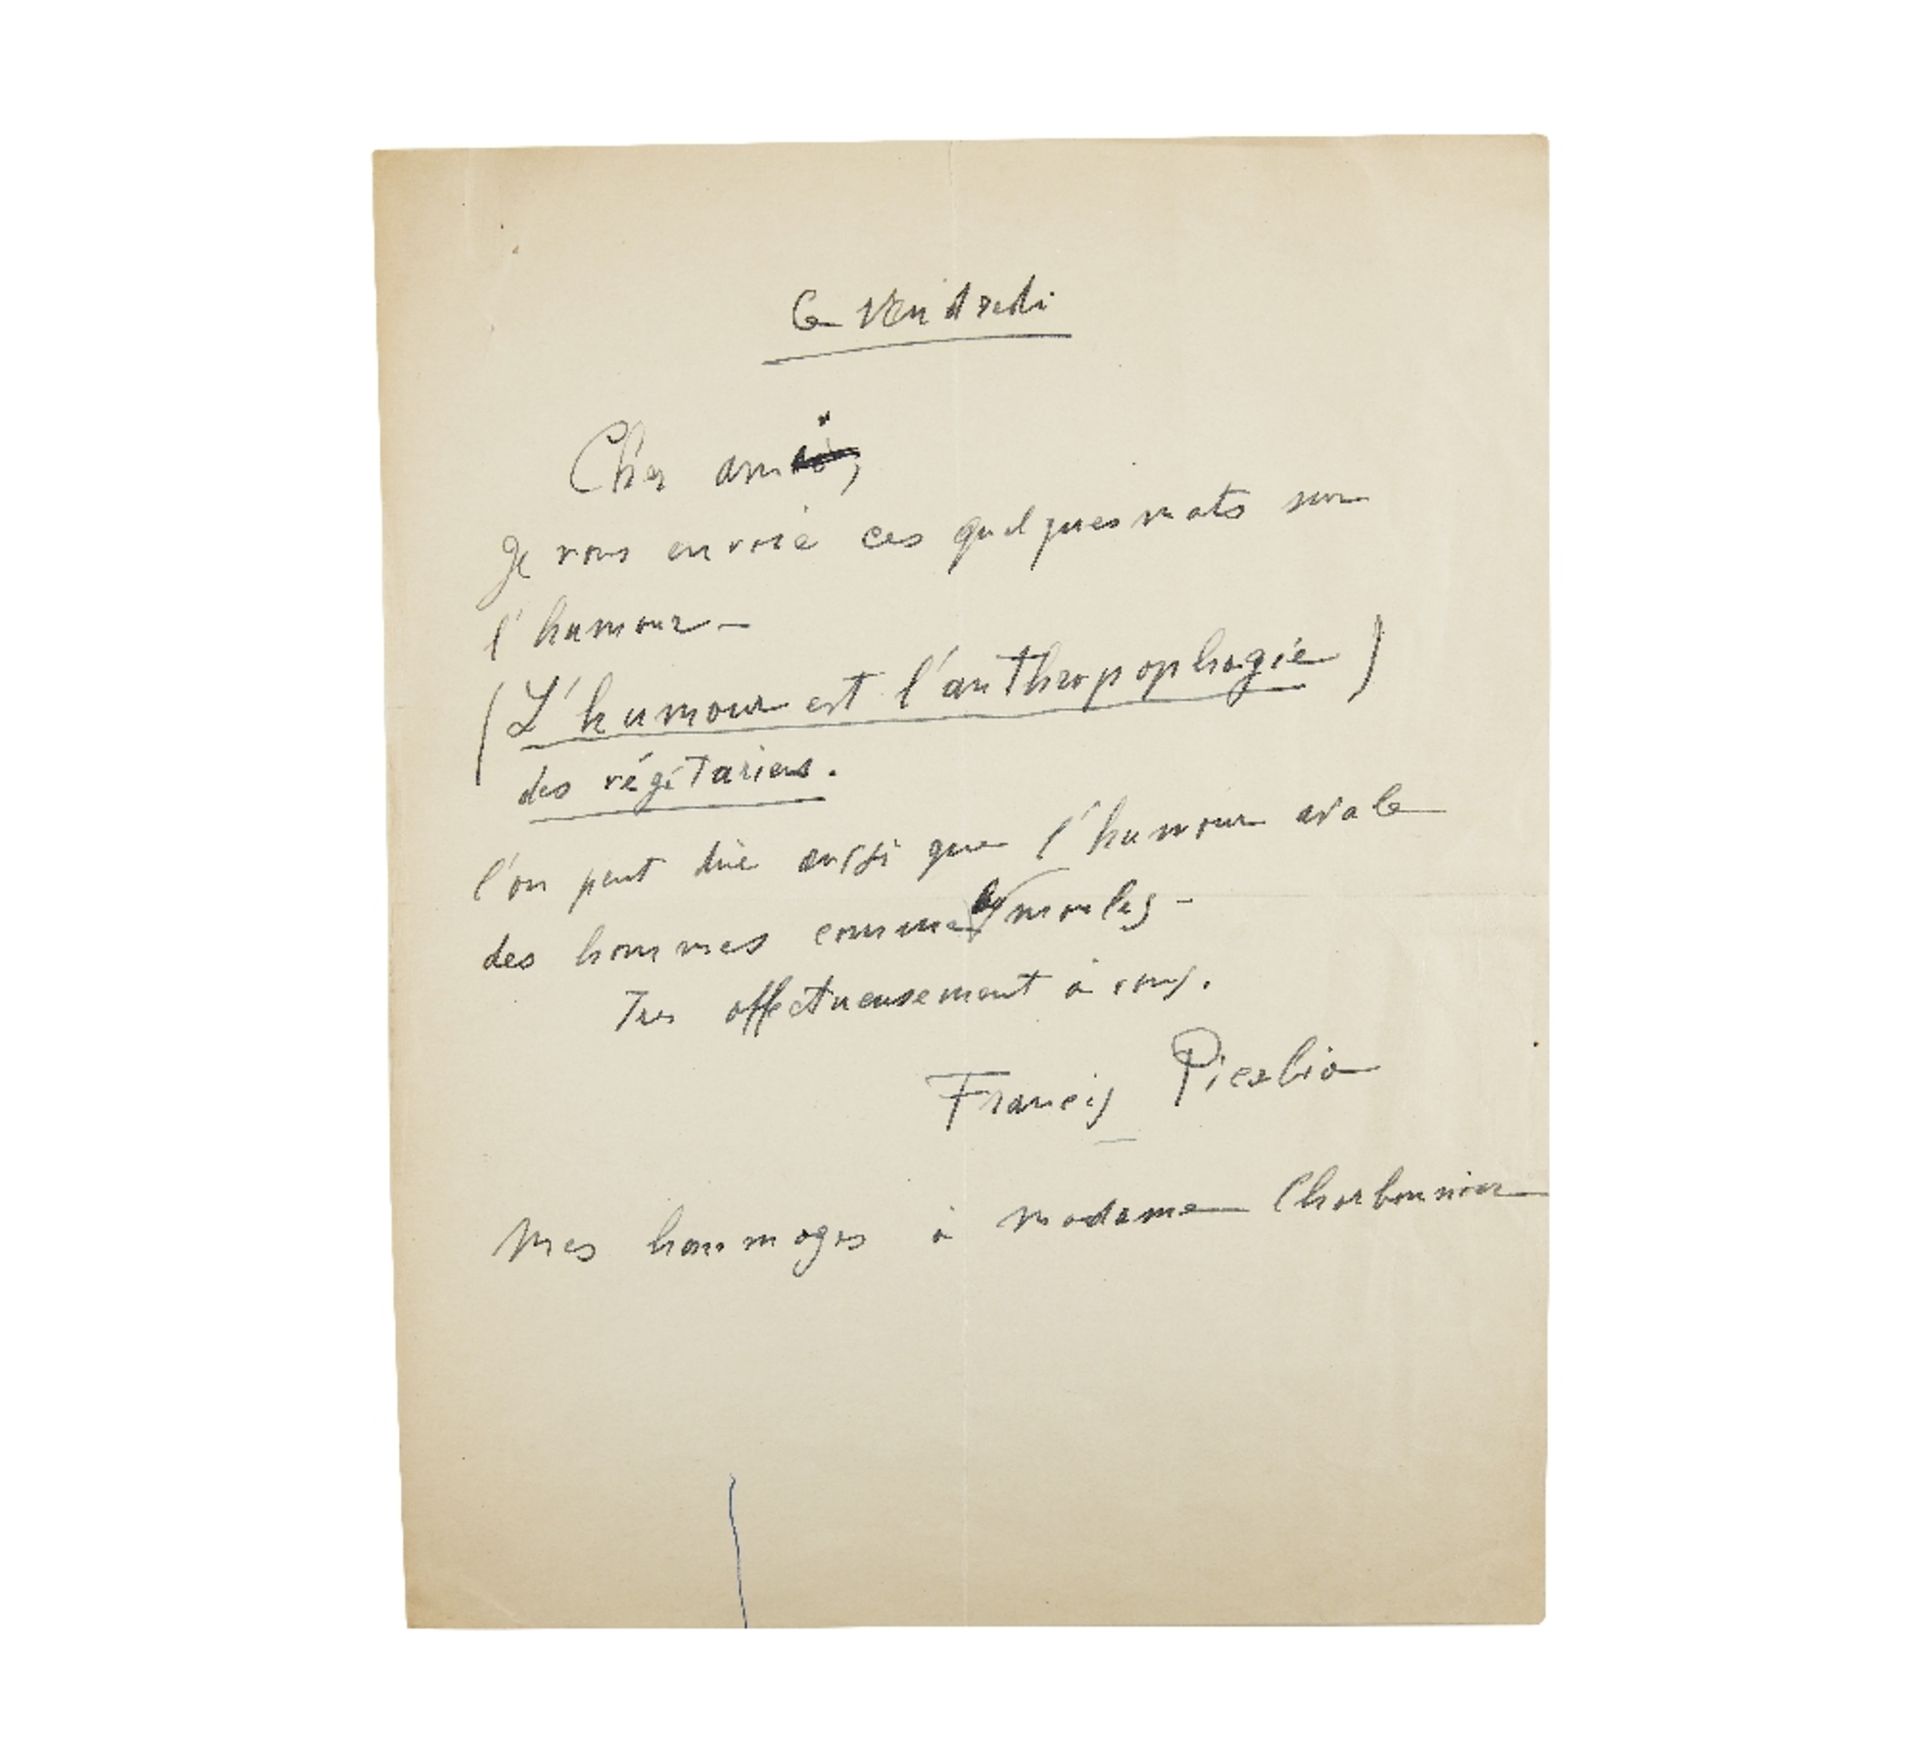 Le Vendredi
Cher ami,
Je vous envoie ces quelques mots sur
l'humour –
(L'humour est l'anthropophagie)
des végétariens.
l'on peut dire aussi que l'humour avale
des hommes comme les moules –
Tres affectueusement à vous.
Francis Picabia
Mes hommages à Madame Charbonnier